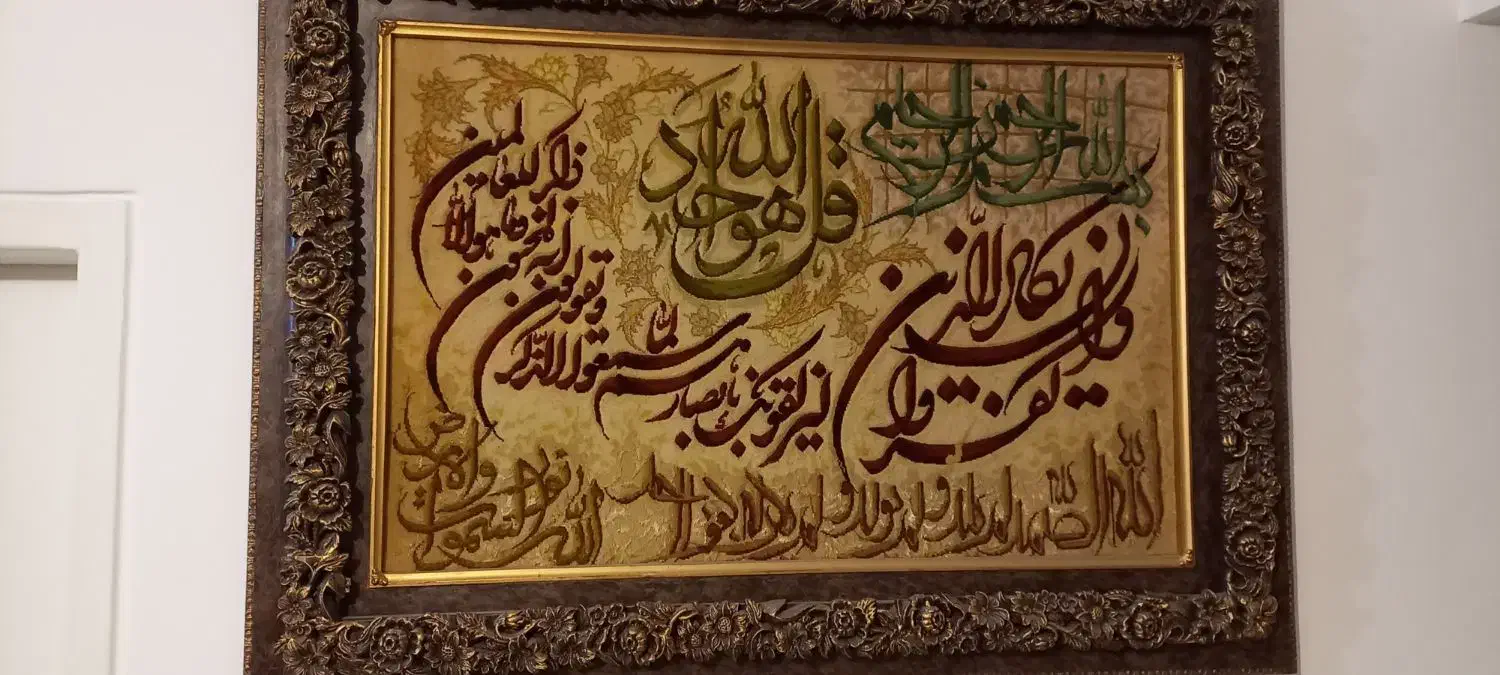 بسم الله الرحمن الرحیم
قل هو الله احد
وان یکاد الذین
کفروا لیزلقونک بابصارهم لما سمعوا الذکر
و یقولون انه لمجنون وما هو الا
ذکر للعالمین
الله الصمد لم یلد و لم یولد و لم یکن له کفوا احد
الله نور السموات والارض